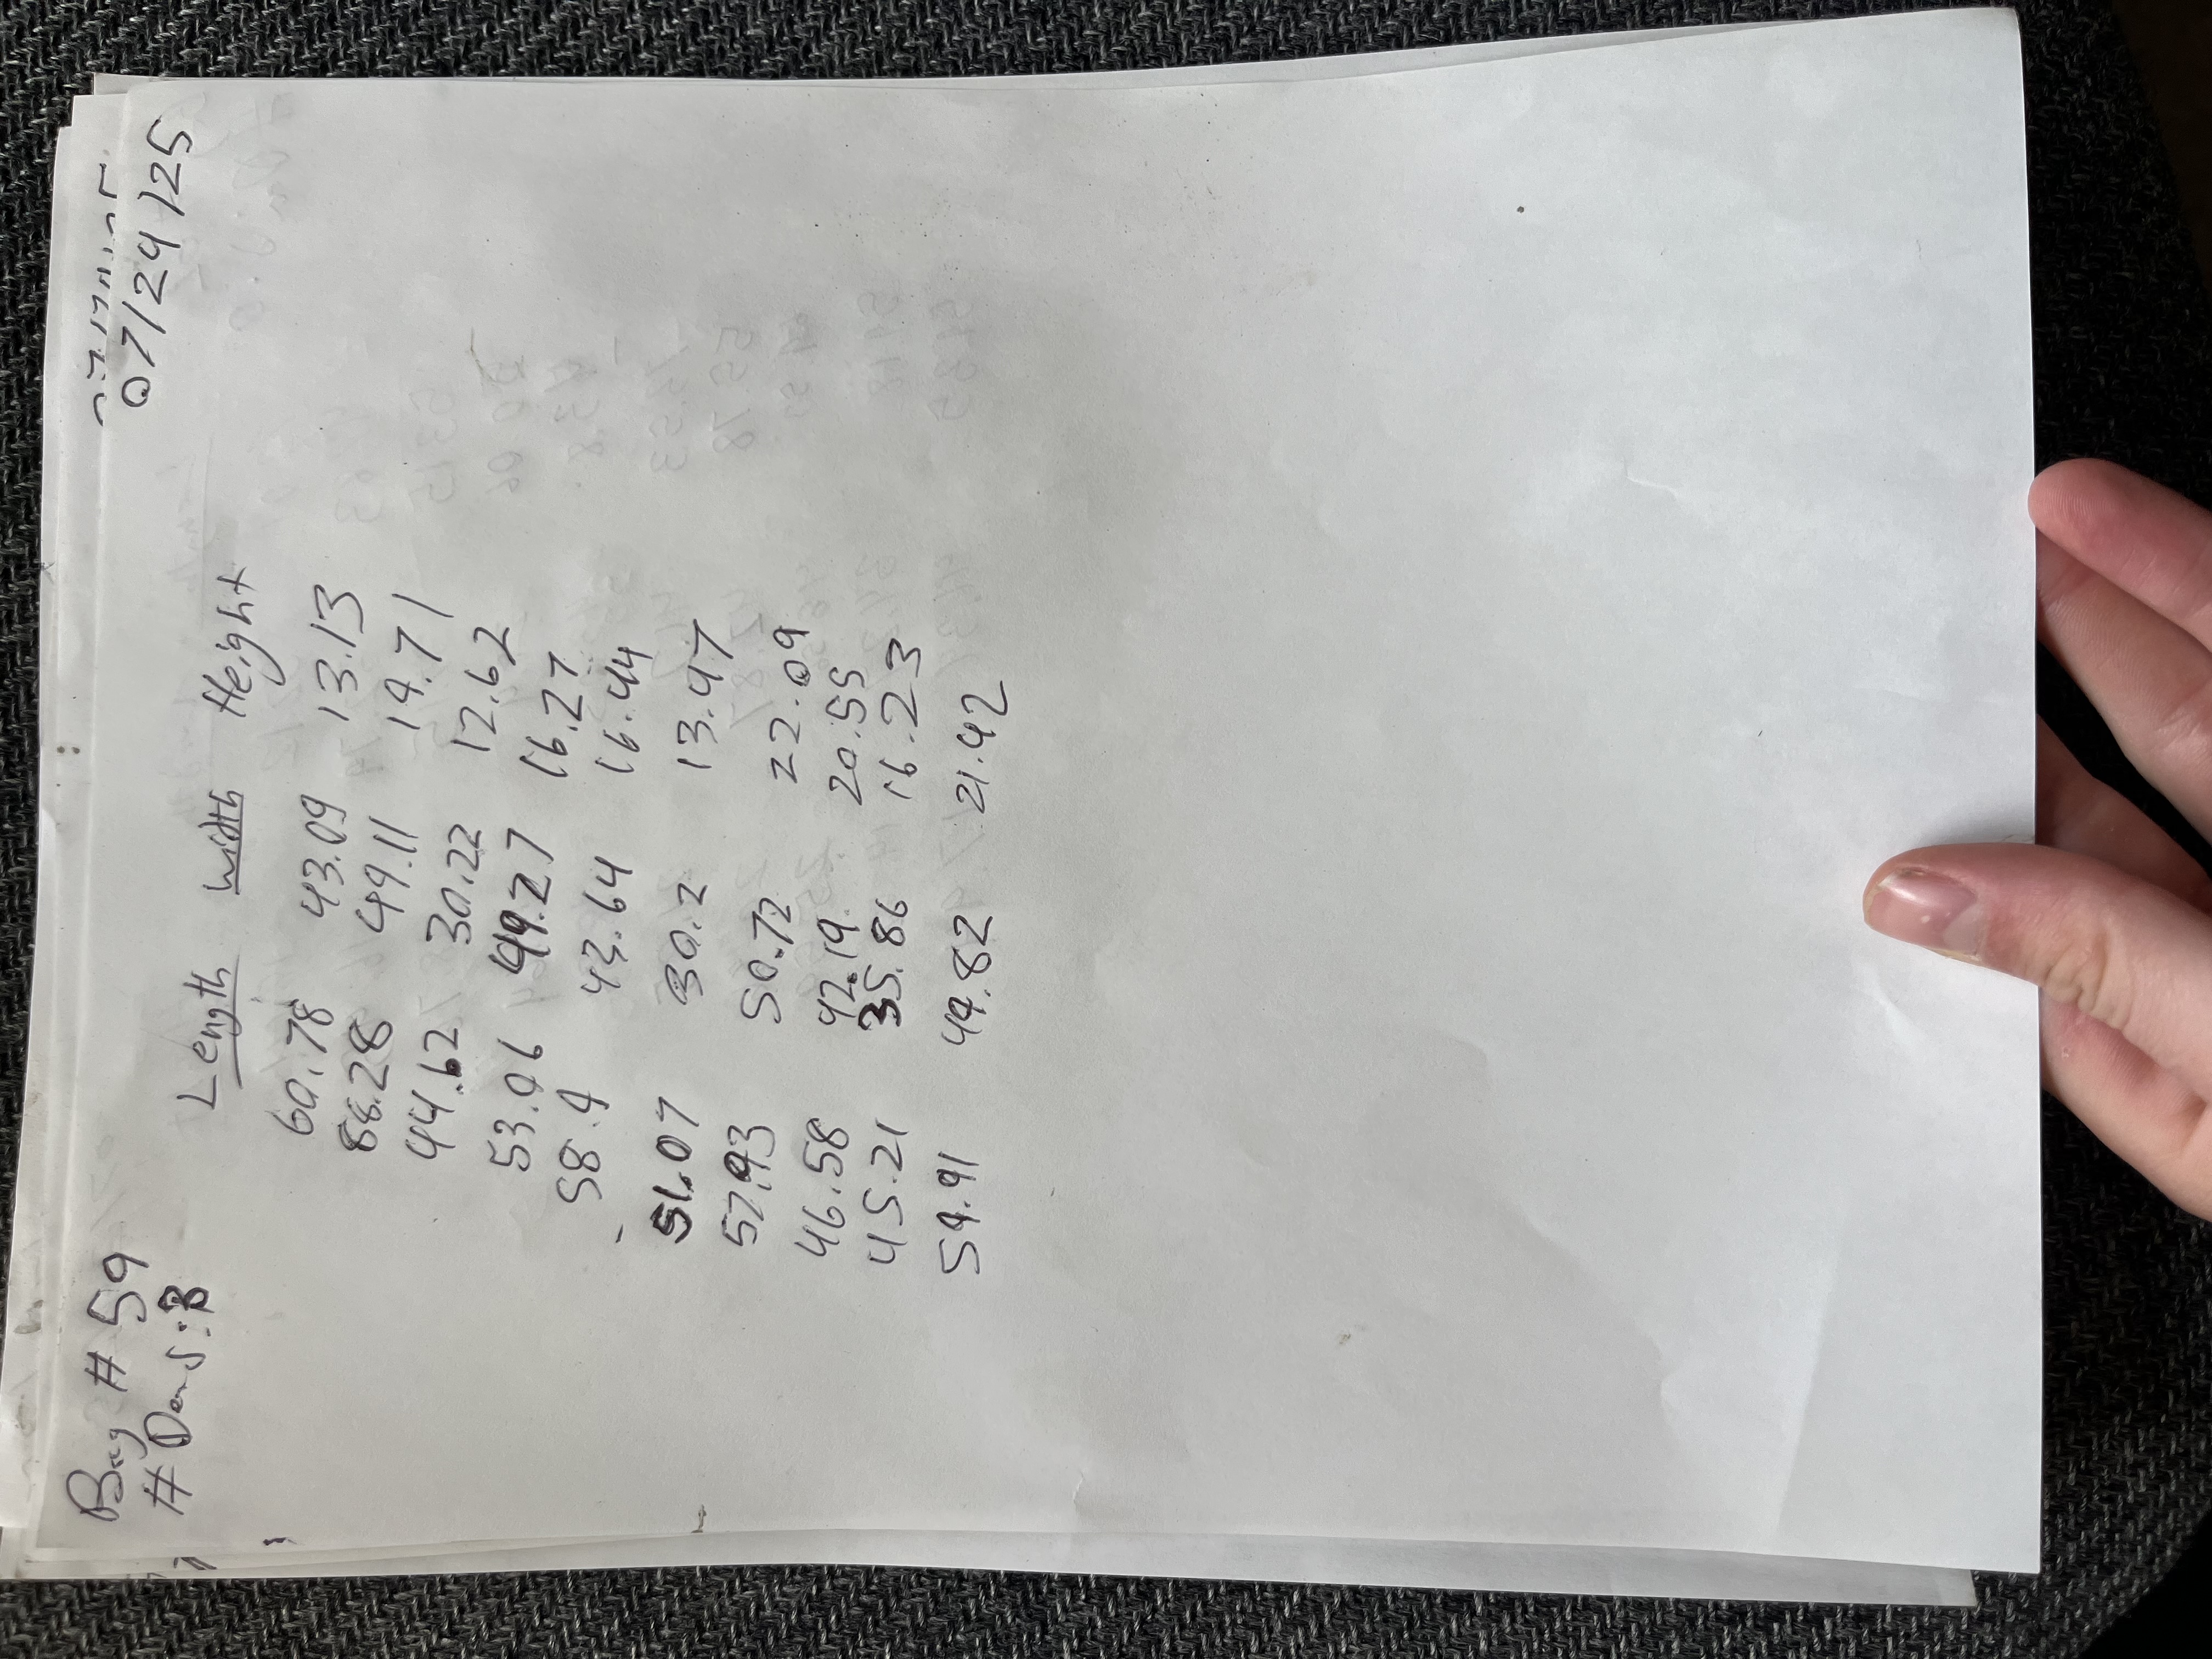 Bag # 59
07/24/25
# Dens: 3
Length Width Height
60.78 43.09 13.13
88.28 49.11 19.71
44.62 30.22 12.62
53.06 49.27 16.27
58.4 43.64 16.44
51.07 30.2 13.47
57.93 50.72 22.09
46.58 42.19 20.55
45.21 35.86 16.23
59.91 44.82 21.42